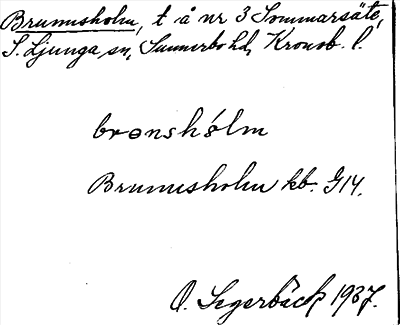 Brunnsholm, t å nr 3 Sommarsäte,
S. Ljunga sn, Sunnerbo hd, Kronob. l.
brɵnshólm
Brunnsholm kb. G14.
O. Segerbäck 1937.